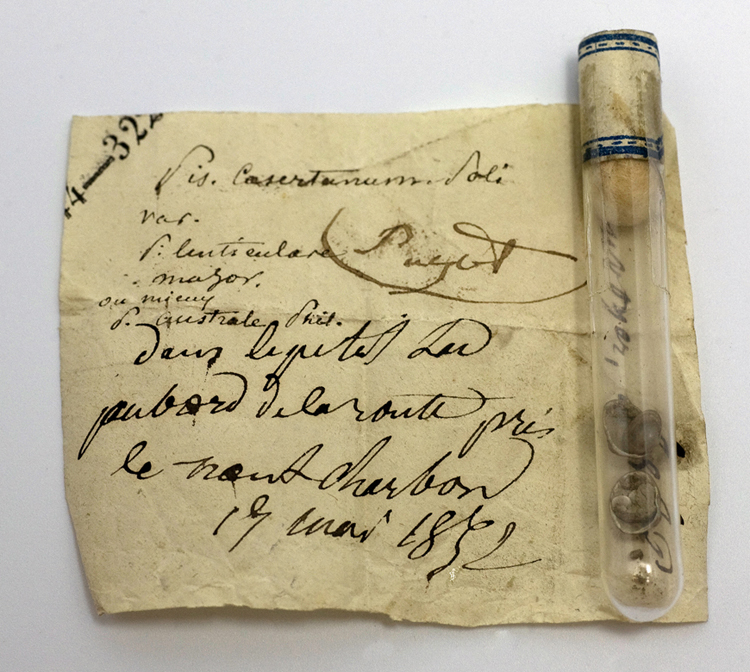 4—322
Pis. Casertanum. Poli
var.
P. lenticulare
major.
ou mieux
P. australe Phil.
Puget
dans le petit
au bord de la route près
le mont charbon
17 mai 1852